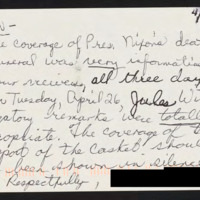 e coverage of Pres. Nixon's dea
uneral was very informati
our reviews, all three day
n Tuesday, April 26, Jules Wi
atory remarks were totall
opriate. The coverage of t
pot of the casket shoul
been shown in silence
Respectfully,